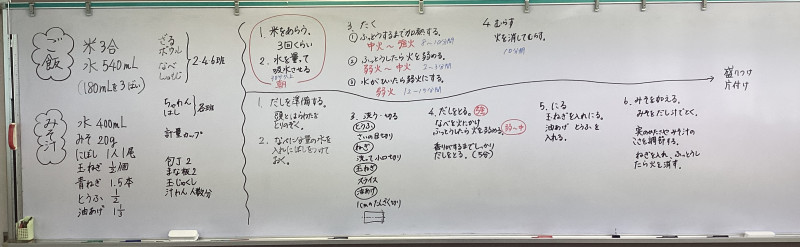 ご飯
米3合
水 540mL
(180mLを3ばい)
ざる
ボウル
なべ
しゃもじ
2・4・6班
ちゃわん
はし
各班
計量カップ
みそ汁
水 400mL
みそ 20g
にぼし 1人1尾
玉ねぎ 1/2個
青ねぎ 1.5本
とうふ 1/2
油あげ 1 1/2
包丁2
まな板2
玉じゃくし
汁わん人数分
1. 米をあらう。
3回くらい
2. 水を量って
吸水させる
朝
3. たく
① ふっとうするまで加熱する。
中火～強火 8～10分間
② ふっとうしたら火を弱める。
弱火～中火
③ 水がひいたら弱火にする。
弱火 12～15分間
4. むらす
火を消してむらす。
10分間
盛りつけ
片付け
1. だしを準備する。
頭とはらわたを
とりのぞく。
2. なべに分量の水を
入れにぼしをつけて
おく。
3. 洗う・切る
とうふ
さいの目切り
ねぎ
洗って小口切り
玉ねぎ
スライス
油あげ
1cmのたんざく切り
4. だしをとる。 強
なべを火にかけ
ふっとうしたら火を弱める。 弱～中
だしをとる。(5分)
5. にる
玉ねぎを入れにる。
油あげ とうふを
入れる。
6. みそを加える。
みそをだし汁でとく。
実のかたさやみそ汁の
こさを調節する。
ねぎを入れ、ふっとうし
たら火を消す。